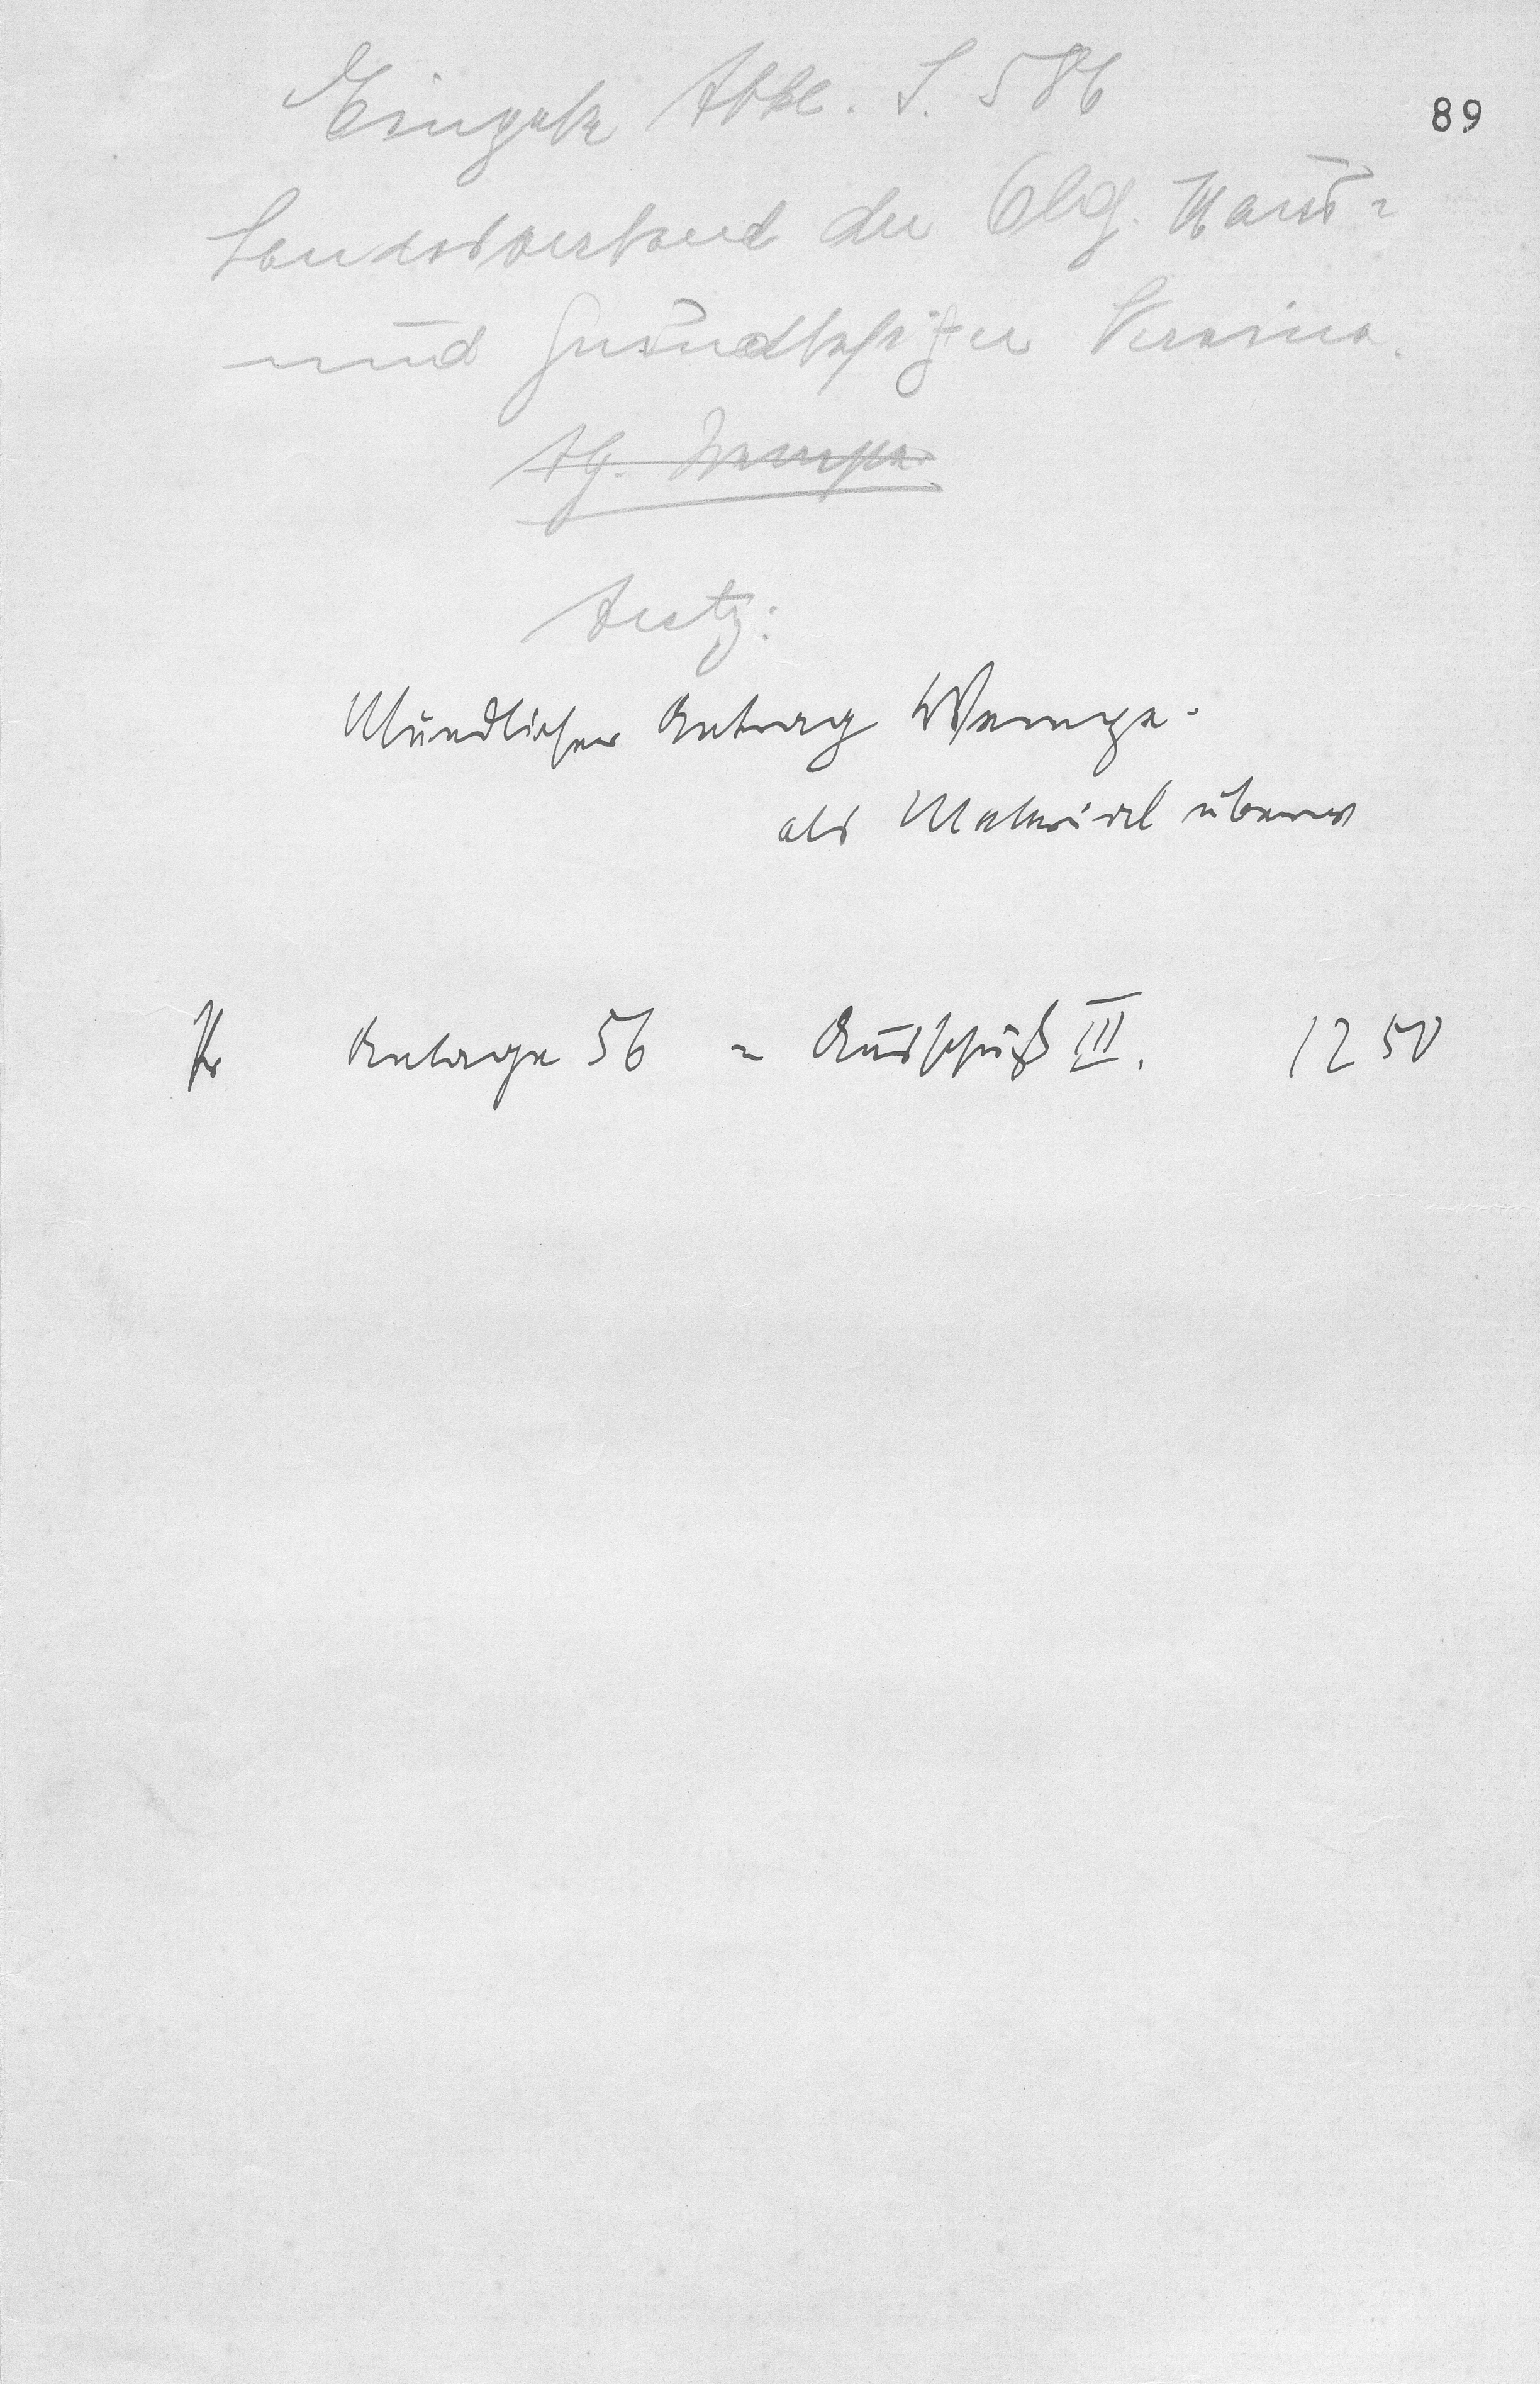 89
Eingabe Abbl. S. 586
Landesverband der Oldbg. Haus=
und Grundbesitzer Vereine.
Abg. Wempe.
Antrg:
Mündlicher Antrag Wempe.
als Material überw
Anlage 56 = Ausschuß III. 1250